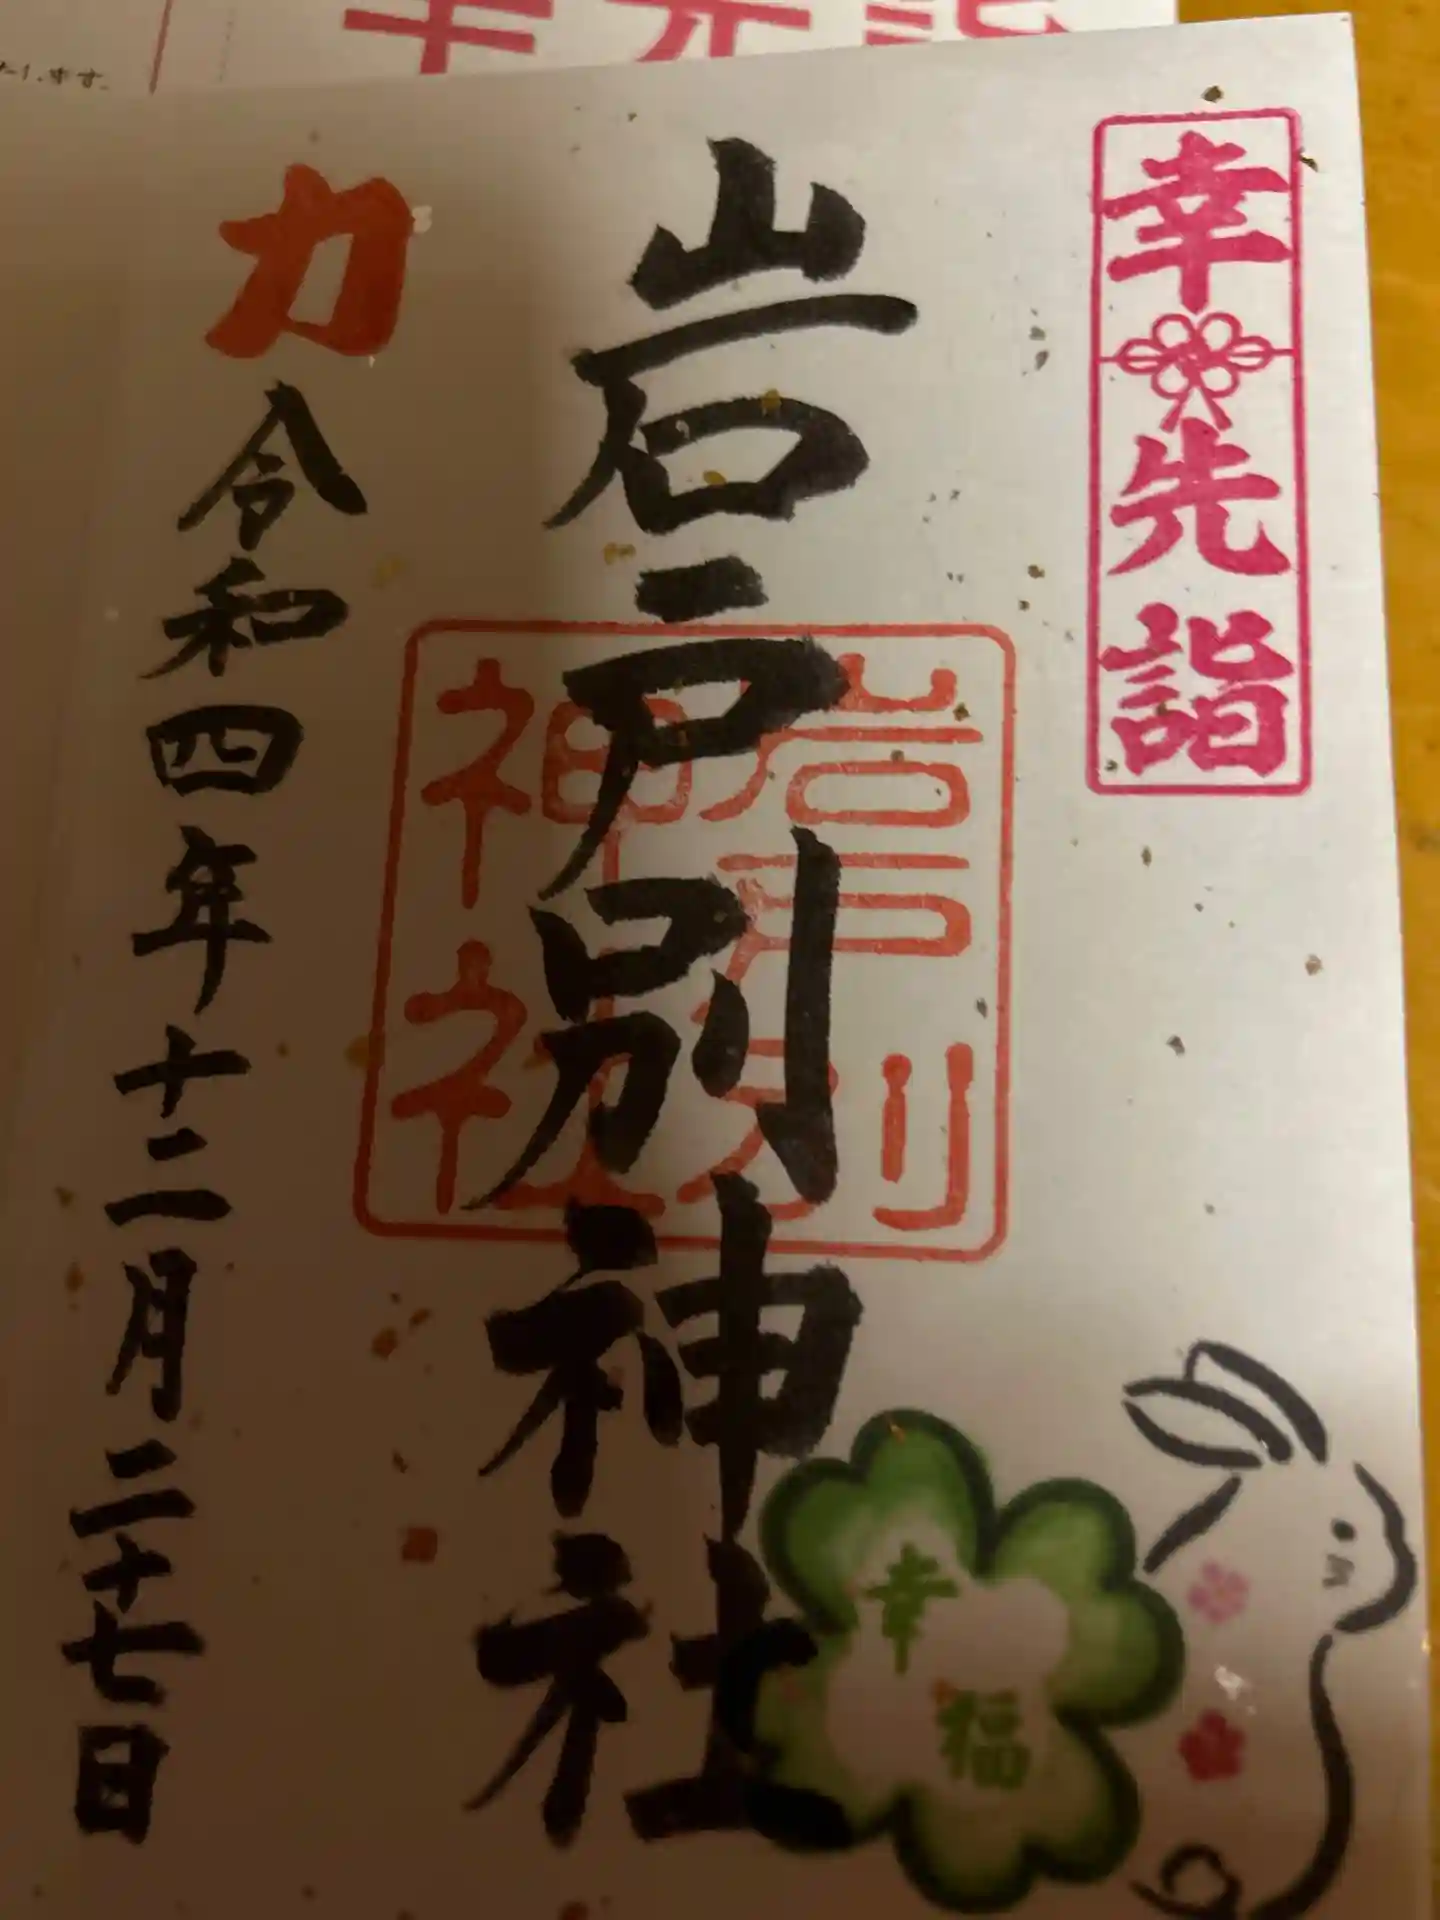 幸先詣
岩戸別神社
岩戸別
神社
力
令和四年十二月二十七日
幸福
幸先詣
します。